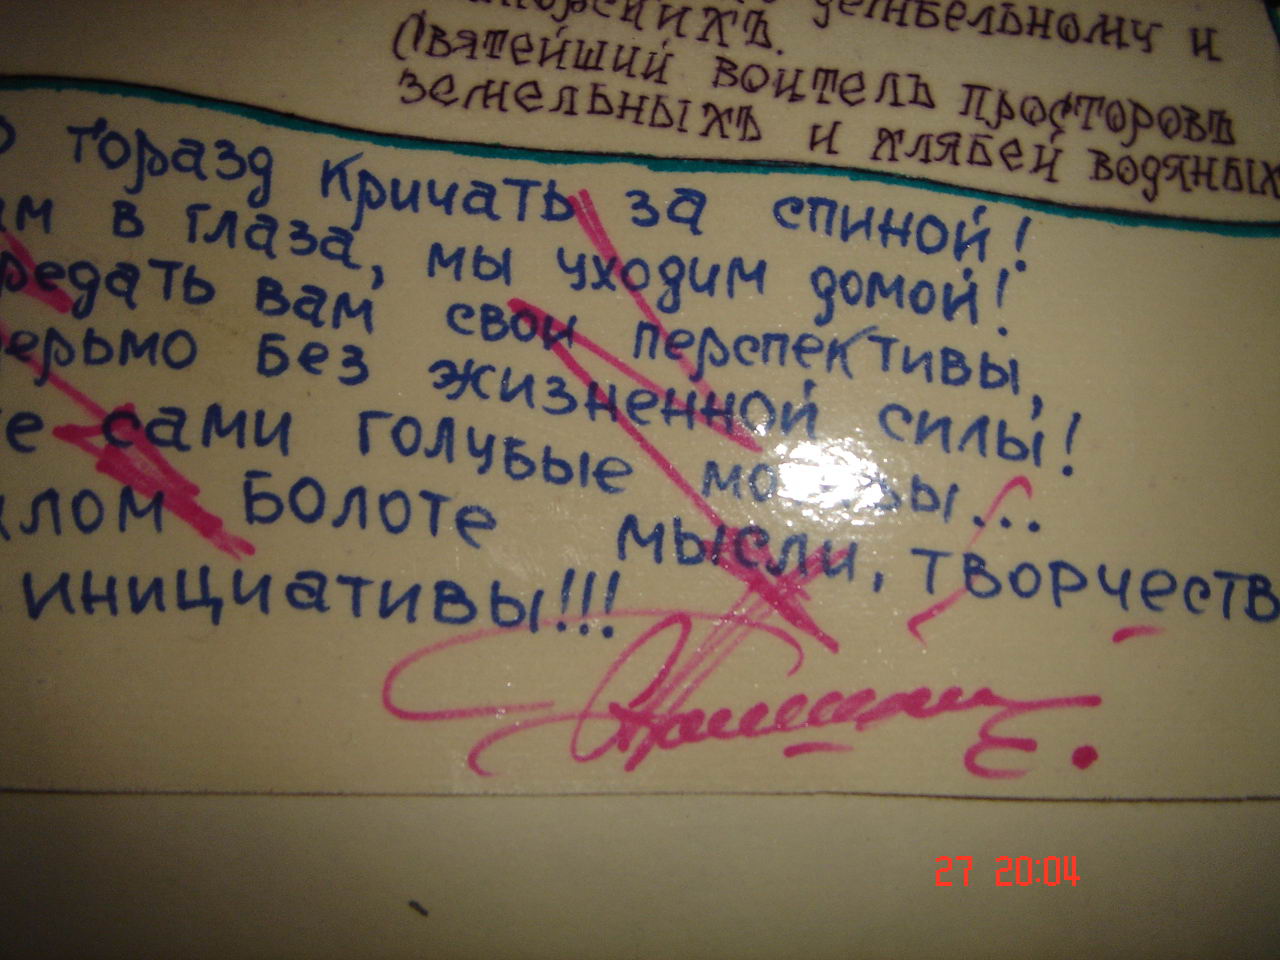 дембельному и
Святейший воитель просторовъ
земельныхъ и хлябей водяных
горазд кричать за спиной!
в глаза, мы уходим домой!
редать вам свои перспективы,
ерьмо без жизненной силы!
е сами голубые
лом болоте мысли, творчеств
инициативы!!!
27 20:04